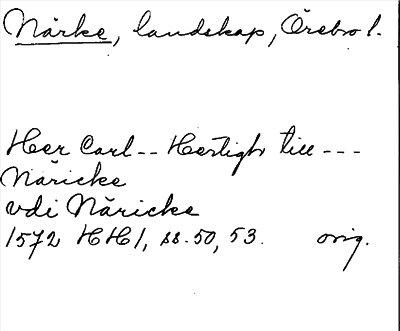 Närke, landskap, Örebro l.
Her Carl -- Hertigh till ---
Näricke
vdi Näricke
1572 HH1, ss. 50, 53. orig.